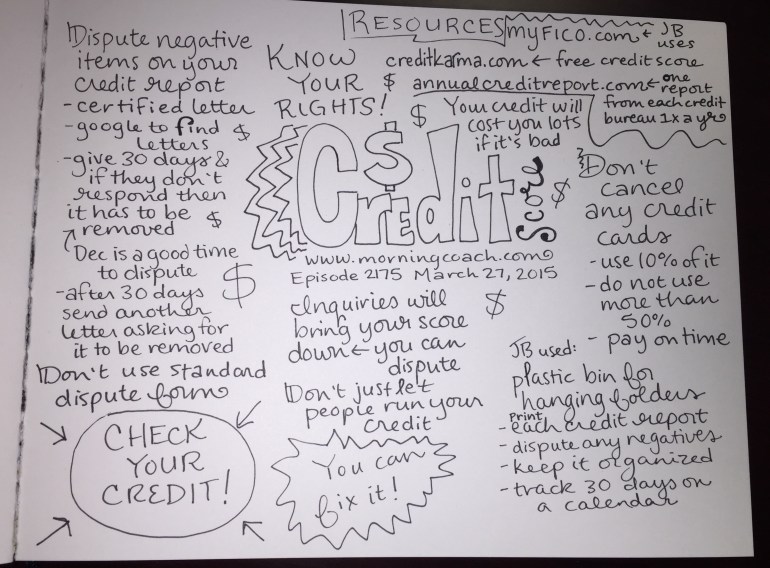 Dispute negative
items on your
credit report
- certified letter
- google to find
letters
- give 30 days &
if they don't
respond then
it has to be
removed
Dec is a good time
to dispute
- after 30 days
send another
letter asking for
it to be removed
Don't use standard
dispute form
CHECK
YOUR
CREDIT!
KNOW
YOUR
RIGHTS!
RESOURCES
myFICO.com ← JB
uses
creditkarma.com ← free credit score
annualcreditreport.com ← one
report
from each credit
bureau 1x a yr
Your credit will
cost you lots
if it's bad
Credit
Score
www.morningcoach.com
Episode 2175 March 27, 2015
Inquiries will
bring your score
down ← you can
dispute
Don't just let
people run your
credit
You can
fix it!
Don't
cancel
any credit
cards
- use 10% of it
- do not use
more than
50%
- pay on time
JB used:
plastic bin for
hanging folders
- Print each credit report
- dispute any negatives
- keep it organized
- track 30 days on
a calendar